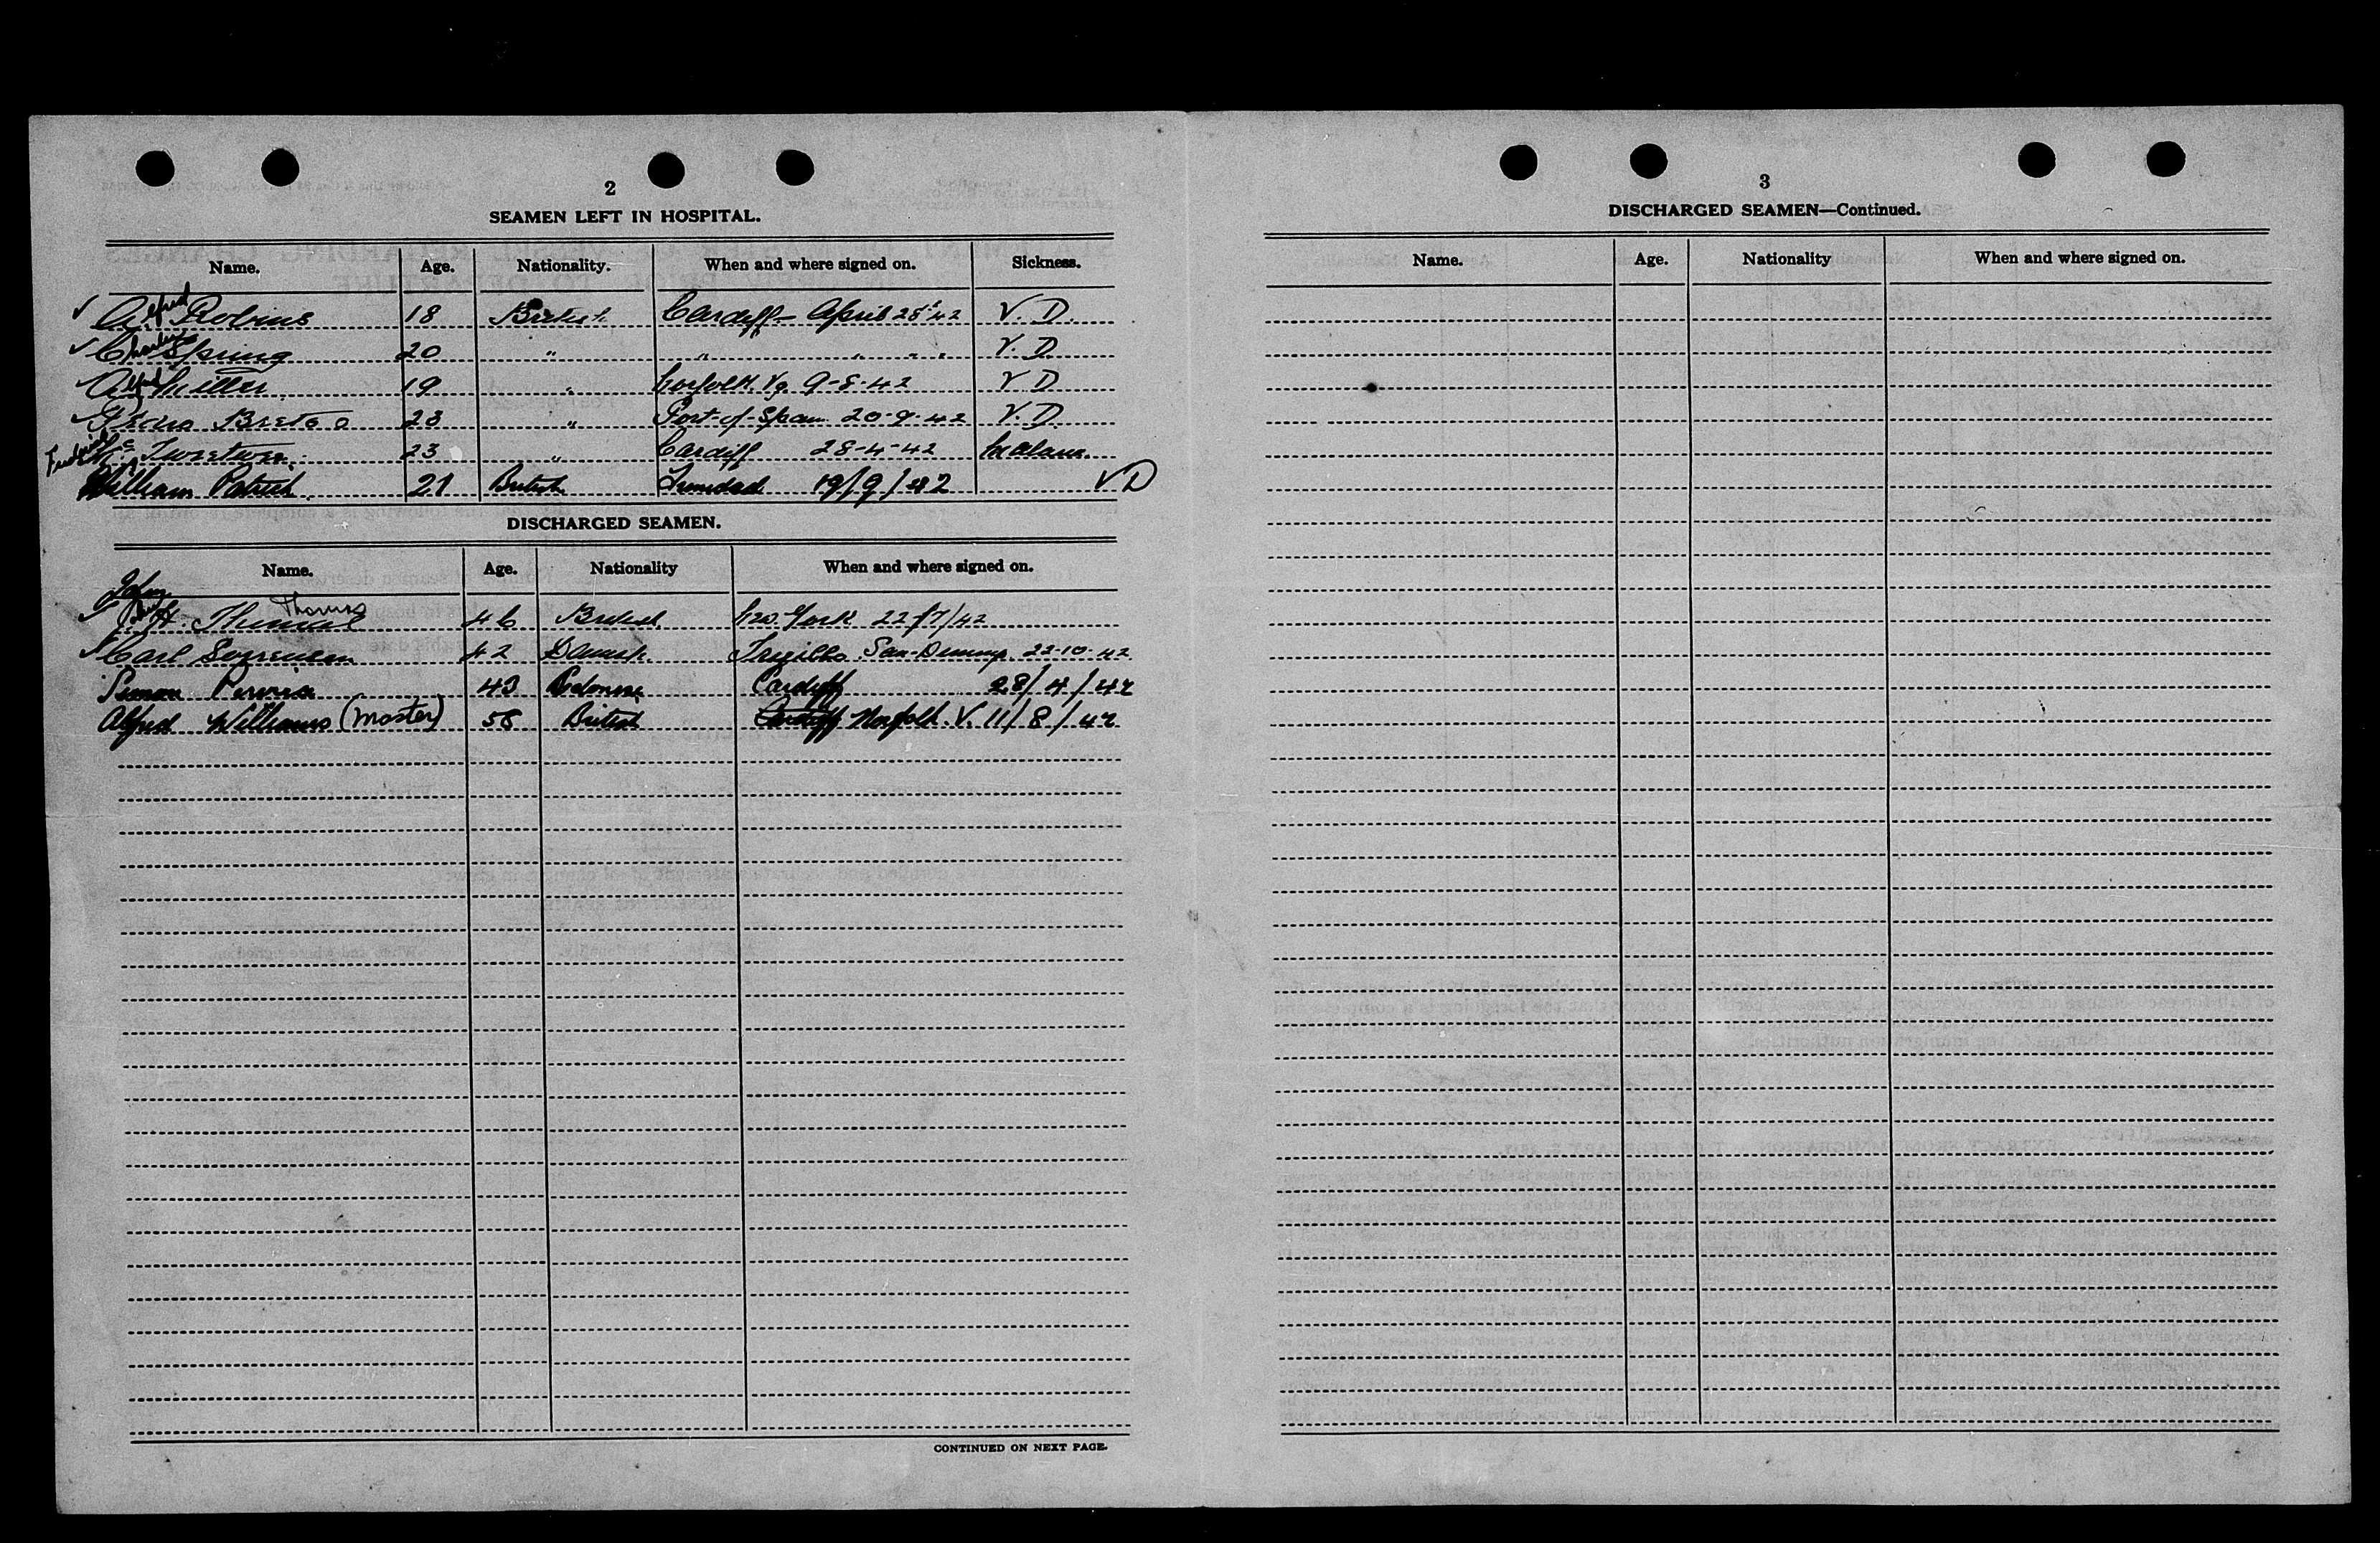 2
SEAMEN LEFT IN HOSPITAL.
Name. Age. Nationality. When and where signed on. Sickness.
✓ Alfred Robins 18 British Cardiff - April 28 42 V. D.
✓ Charles Spring 20 " " " " " V. D.
✓ Alfred Miller 19 " Norfolk Va. 9-8-42 V D
✓ Pedro 23 " Port-of-Spain 20-9-42 V. D.
Frederick 23 " Cardiff 28-4-42
William Patrick 21 British Trinidad 19/9/42 V D
DISCHARGED SEAMEN.
Name. Age. Nationality When and where signed on.
✓ John H. Thomas 46 British New York 22/7/42
✓ Carl Sorensen 42 Danish Trujillo 22-10-42
43 Cardiff 28/4/42
Alfred Williams (Master) 58 British Cardiff Norfolk. V. 11/8/42
CONTINUED ON NEXT PAGE.
3
DISCHARGED SEAMEN—Continued.
Name. Age. Nationality When and where signed on.